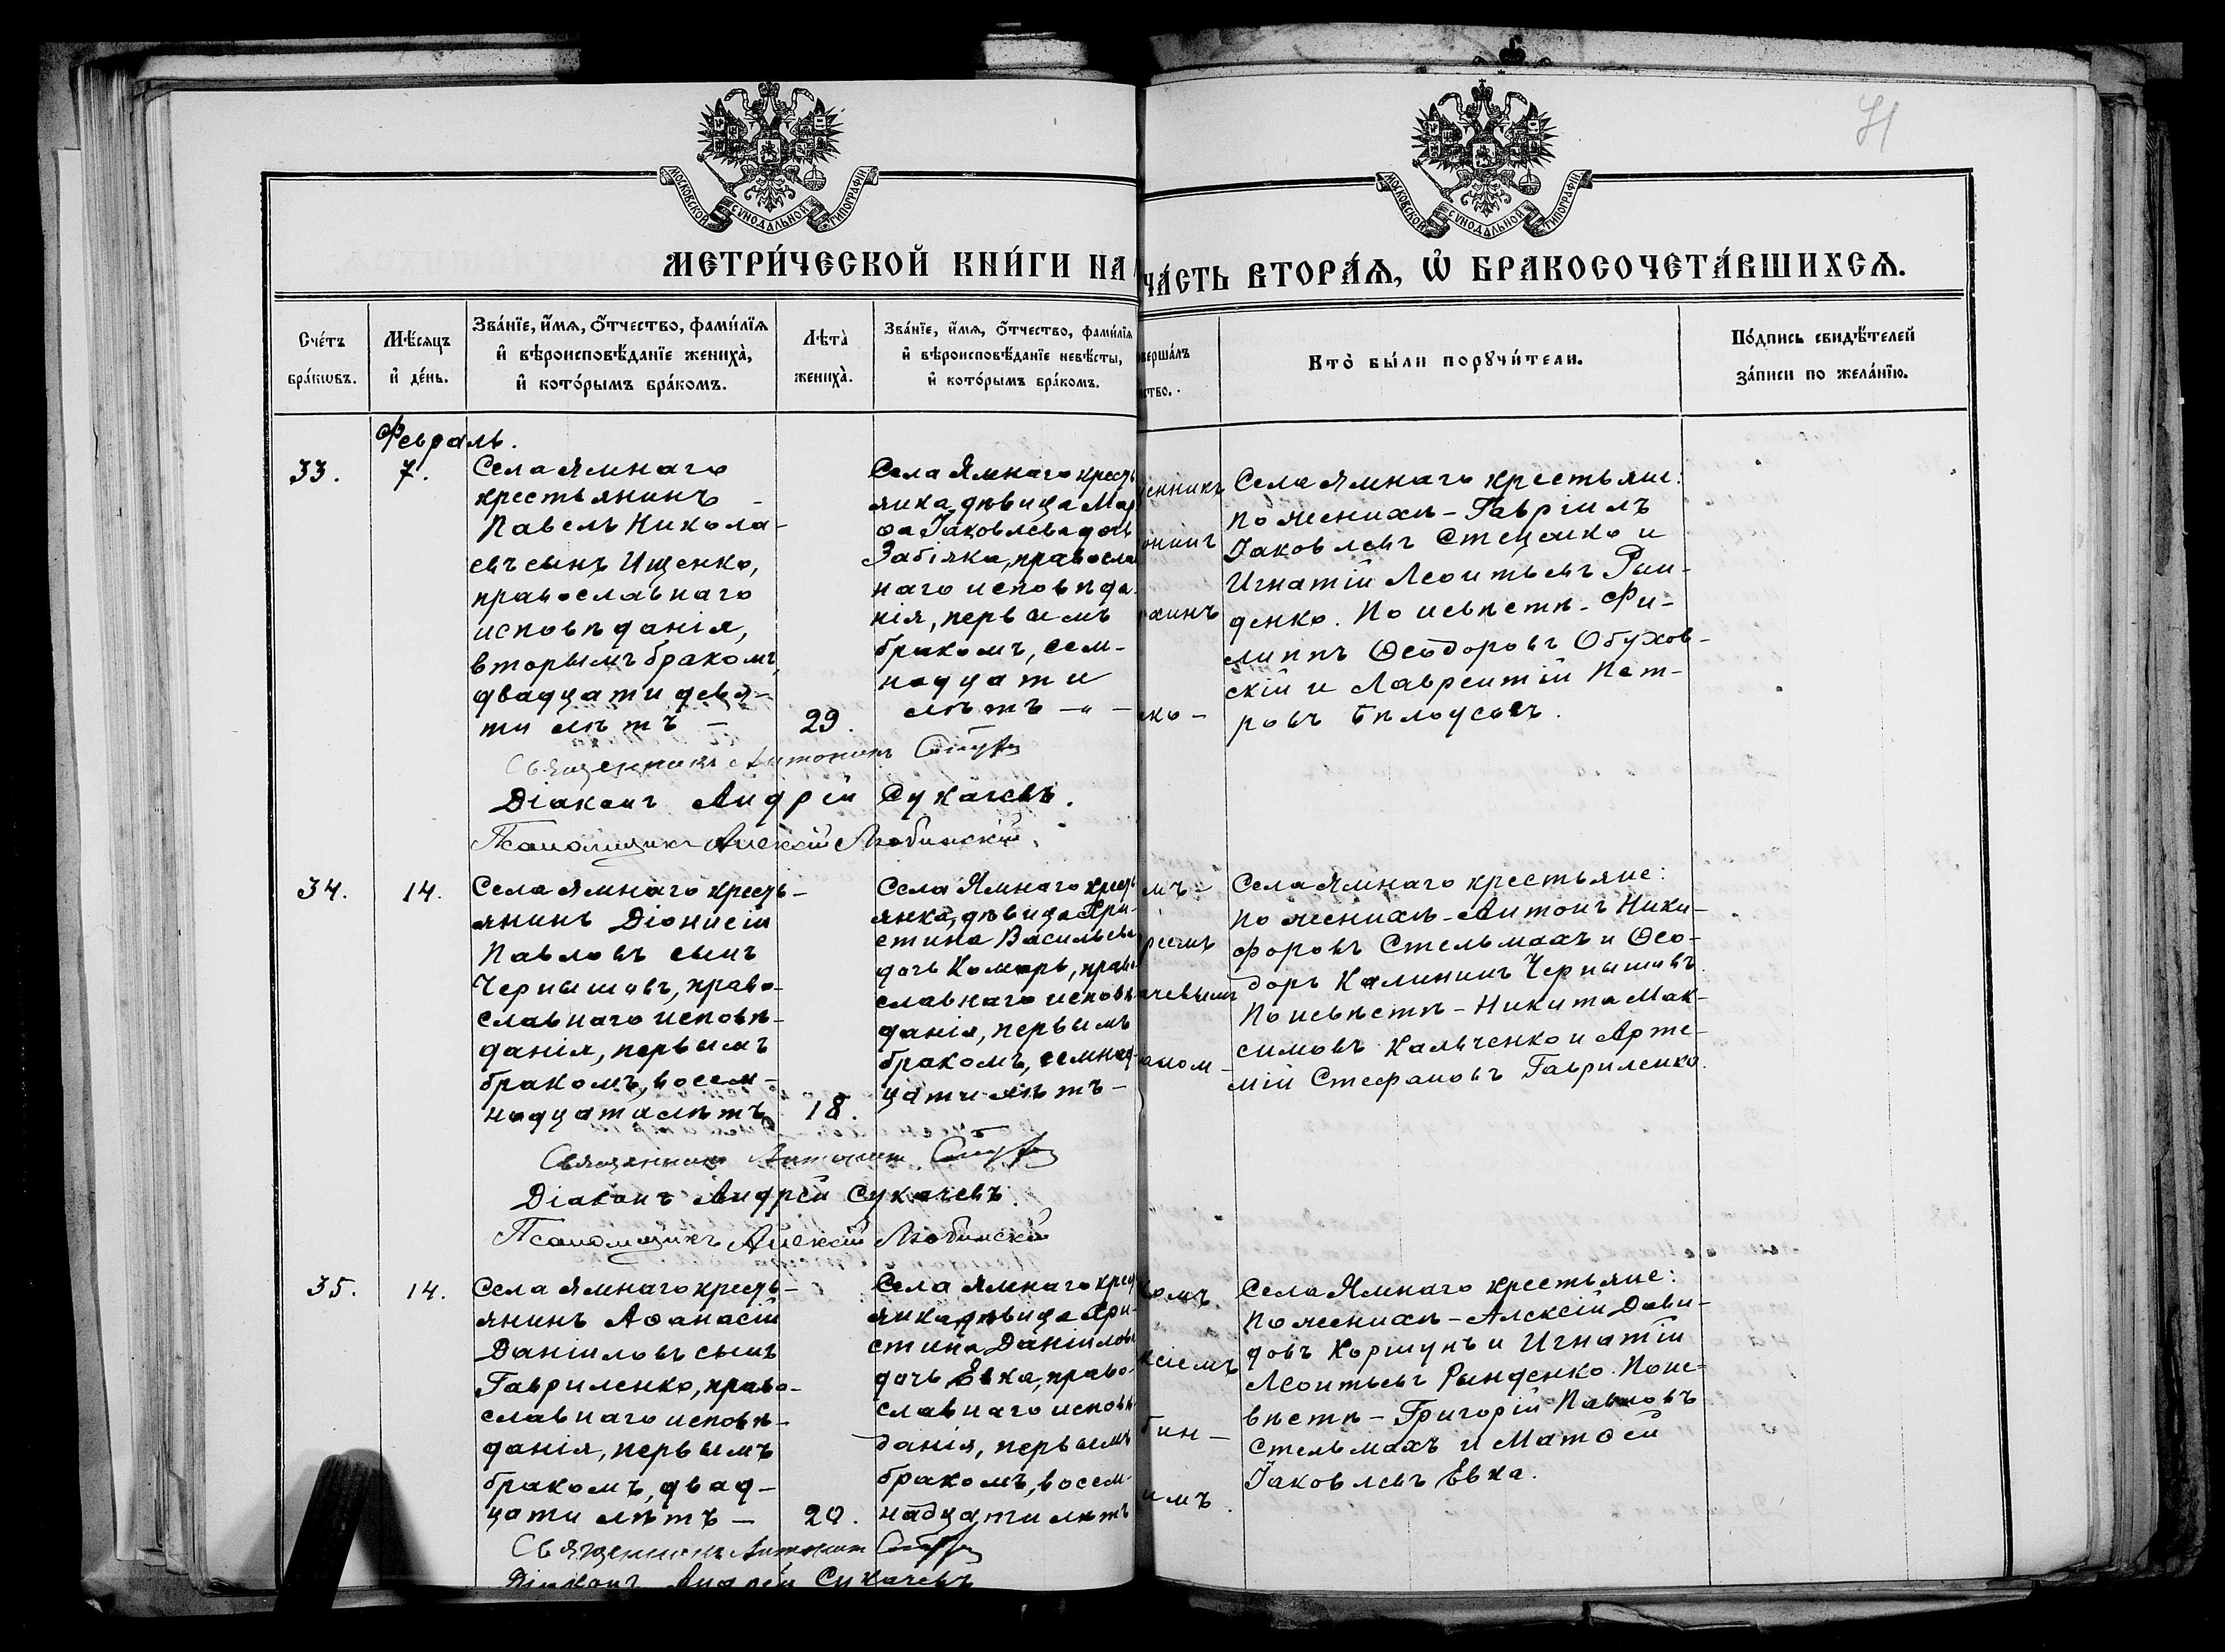 71
МОСКОВСКОЙ СѴНОДАЛЬНОЙ ТИПОГРАФІИ
МОСКОВСКОЙ СѴНОДАЛЬНОЙ ТИПОГРАФІИ
МЕТРИ́ЧЕСКОЙ КНИ́ГИ НА
ЧА́СТЬ ВТОРА́Ѧ, Ѽ БРАКОСОЧЕТА́ВШИХСѦ.
Сче́тъ
бра́кѡвъ.
Мѣ́сѧцъ
и҆ де́нь.
Зва́нїе, и҆́мѧ, ѻ҆́тчество, фами́лїѧ
и҆ вѣроисповѣ́данїе жениха̀,
и҆ кото́рымъ бра́комъ.
Лѣта̀
жениха̀.
Зва́нїе, и҆́мѧ, ѻ҆́тчество, фами́лїѧ
и҆ вѣроисповѣ́данїе невѣ́сты,
и҆ кото́рымъ бра́комъ.
оверша́лъ
нство.
Кто̀ бы́ли порꙋчи́тели.
По́дпись свидѣ́телей
за́писи по жела́нїю.
Февраль.
33.
7.
Села Ямнаго
крестьянинъ
Павелъ Никола-
евъ сынъ Ищенко,
православнаго
исповѣданія,
вторымъ бракомъ,
двадцати девя-
ти лѣтъ —
29.
Села Ямнаго кресть
янка, дѣвица Мар
ѳа Іаковлева дочь
Забіяка, правосла
наго исповѣда-
нія, первымъ
бракомъ, сем-
надцати
лѣтъ —
енникъ
онинъ
ко —
Села Ямнаго крестьяне:
по женихѣ – Гавріилъ
Іаковлевъ Стеценко и
Игнатій Леонтьевъ Рын-
денко. По невѣстѣ – Фи-
липпъ Ѳеодоровъ Обухов-
скій и Лаврентій Пет-
ровъ Бѣлоусовъ.
Священникъ Антонинъ
Діаконъ Андрей Сукачевъ.
Псаломщикъ Алексій Любинскій.
34.
14.
Села Ямнаго кресть-
янинъ Діонисій
Павловъ сынъ
Чернышовъ, право-
славнаго исповѣ-
данія, первымъ
бракомъ, восем-
надцати лѣтъ
18.
Села Ямнаго кресть
янка, дѣвица Хри-
стина Васильева
дочь Комарь, право
славнаго исповѣ
данія, первымъ
бракомъ, семнад-
цати лѣтъ —
мъ —
реемъ
ачевымъ
Села Ямнаго крестьяне:
по женихѣ – Антонъ Ники-
форовъ Стельмахъ и Ѳео-
доръ Калининъ Чернышовъ.
По невѣстѣ – Никита Мак-
симовъ Кальченко и Арте-
мій Стефановъ Гавриленко.
Священникъ Антонинъ
Діаконъ Андрей Сукачевъ.
Псаломщикъ Алексій Любинскій
35.
14.
Села Ямнаго кресть-
янинъ Аѳанасій
Даніиловъ сынъ
Гавриленко, право-
славнаго исповѣ-
данія, первымъ
бракомъ, двад-
цати лѣтъ —
20.
Села Ямнаго крест
янка, дѣвица Хри-
стина Даніилова
дочь Евка, право-
славнаго исповѣ
данія, первымъ
бракомъ, восем-
надцати лѣтъ
комъ
ксіемъ
бин —
имъ.
Села Ямнаго крестьяне:
по женихѣ – Алексій Дави-
довъ Коршунъ и Игнатій
Леонтьевъ Рынденко. По не-
вѣстѣ – Григорій Павловъ
Стельмахъ и Матѳей
Іаковлевъ Евка.
Священникъ Антонинъ
Діаконъ Андрей Сукачевъ